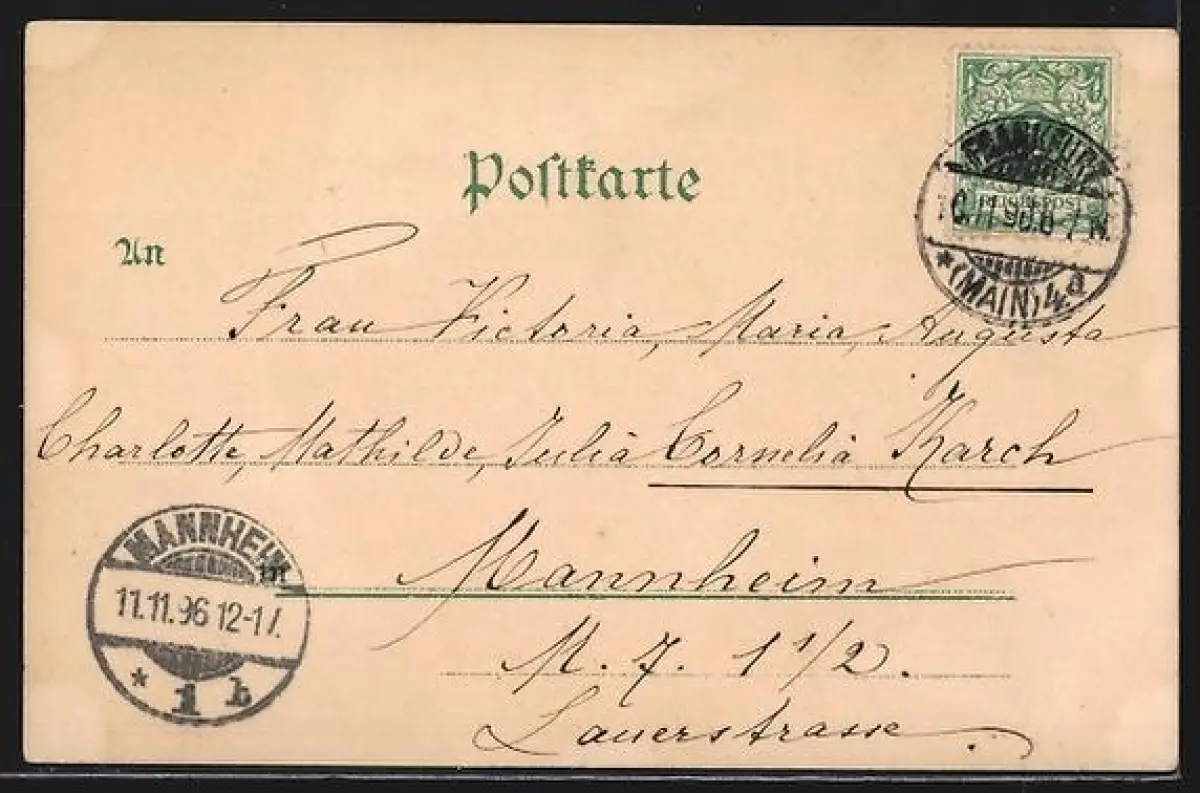 Postkarte
REICHSPOST
FRANKFURT
10.11.96.6-7 N.
* (MAIN) 4 a
An
Frau Victoria, Maria, Augusta
Charlotte, Mathilde, Julia Cornelia Karch
MANNHEIM
11.11.96 12-1 V.
* 1 b
in
Mannheim
M. 7. 1 1/2.
Lauerstrasse.